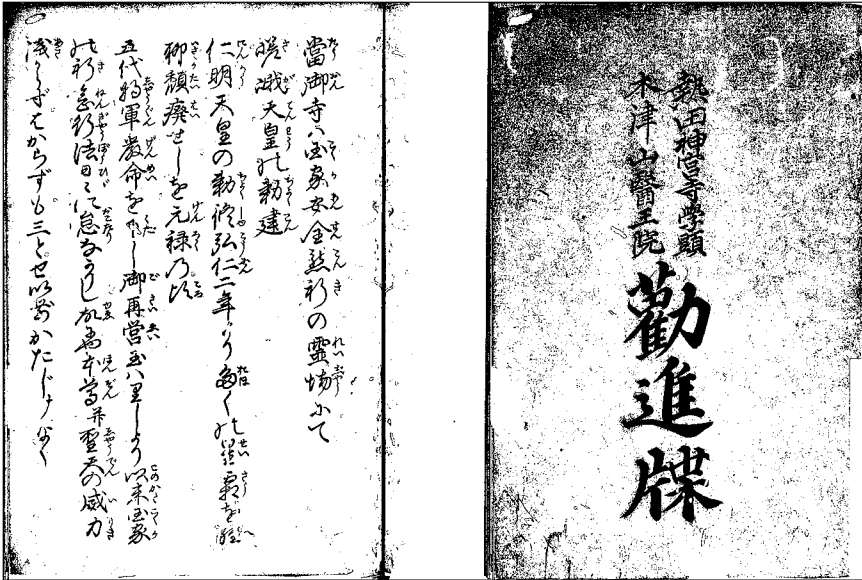 熱田神宮寺學頭
木津山醫王院
勸進牒
當御寺ハ国家安全懇祈の靈場にて
嵯峨天皇の勅建
仁明天皇の勅修弘仁二年より多くの星霜を経
聊頽廃せしを元禄乃比
五代将軍嚴命を下し御再営玉ハりしより以来国家
の祈念行法日々に怠なうし 本尊并聖天の威力
浅からずはからずも三とせ以前かたじけなく